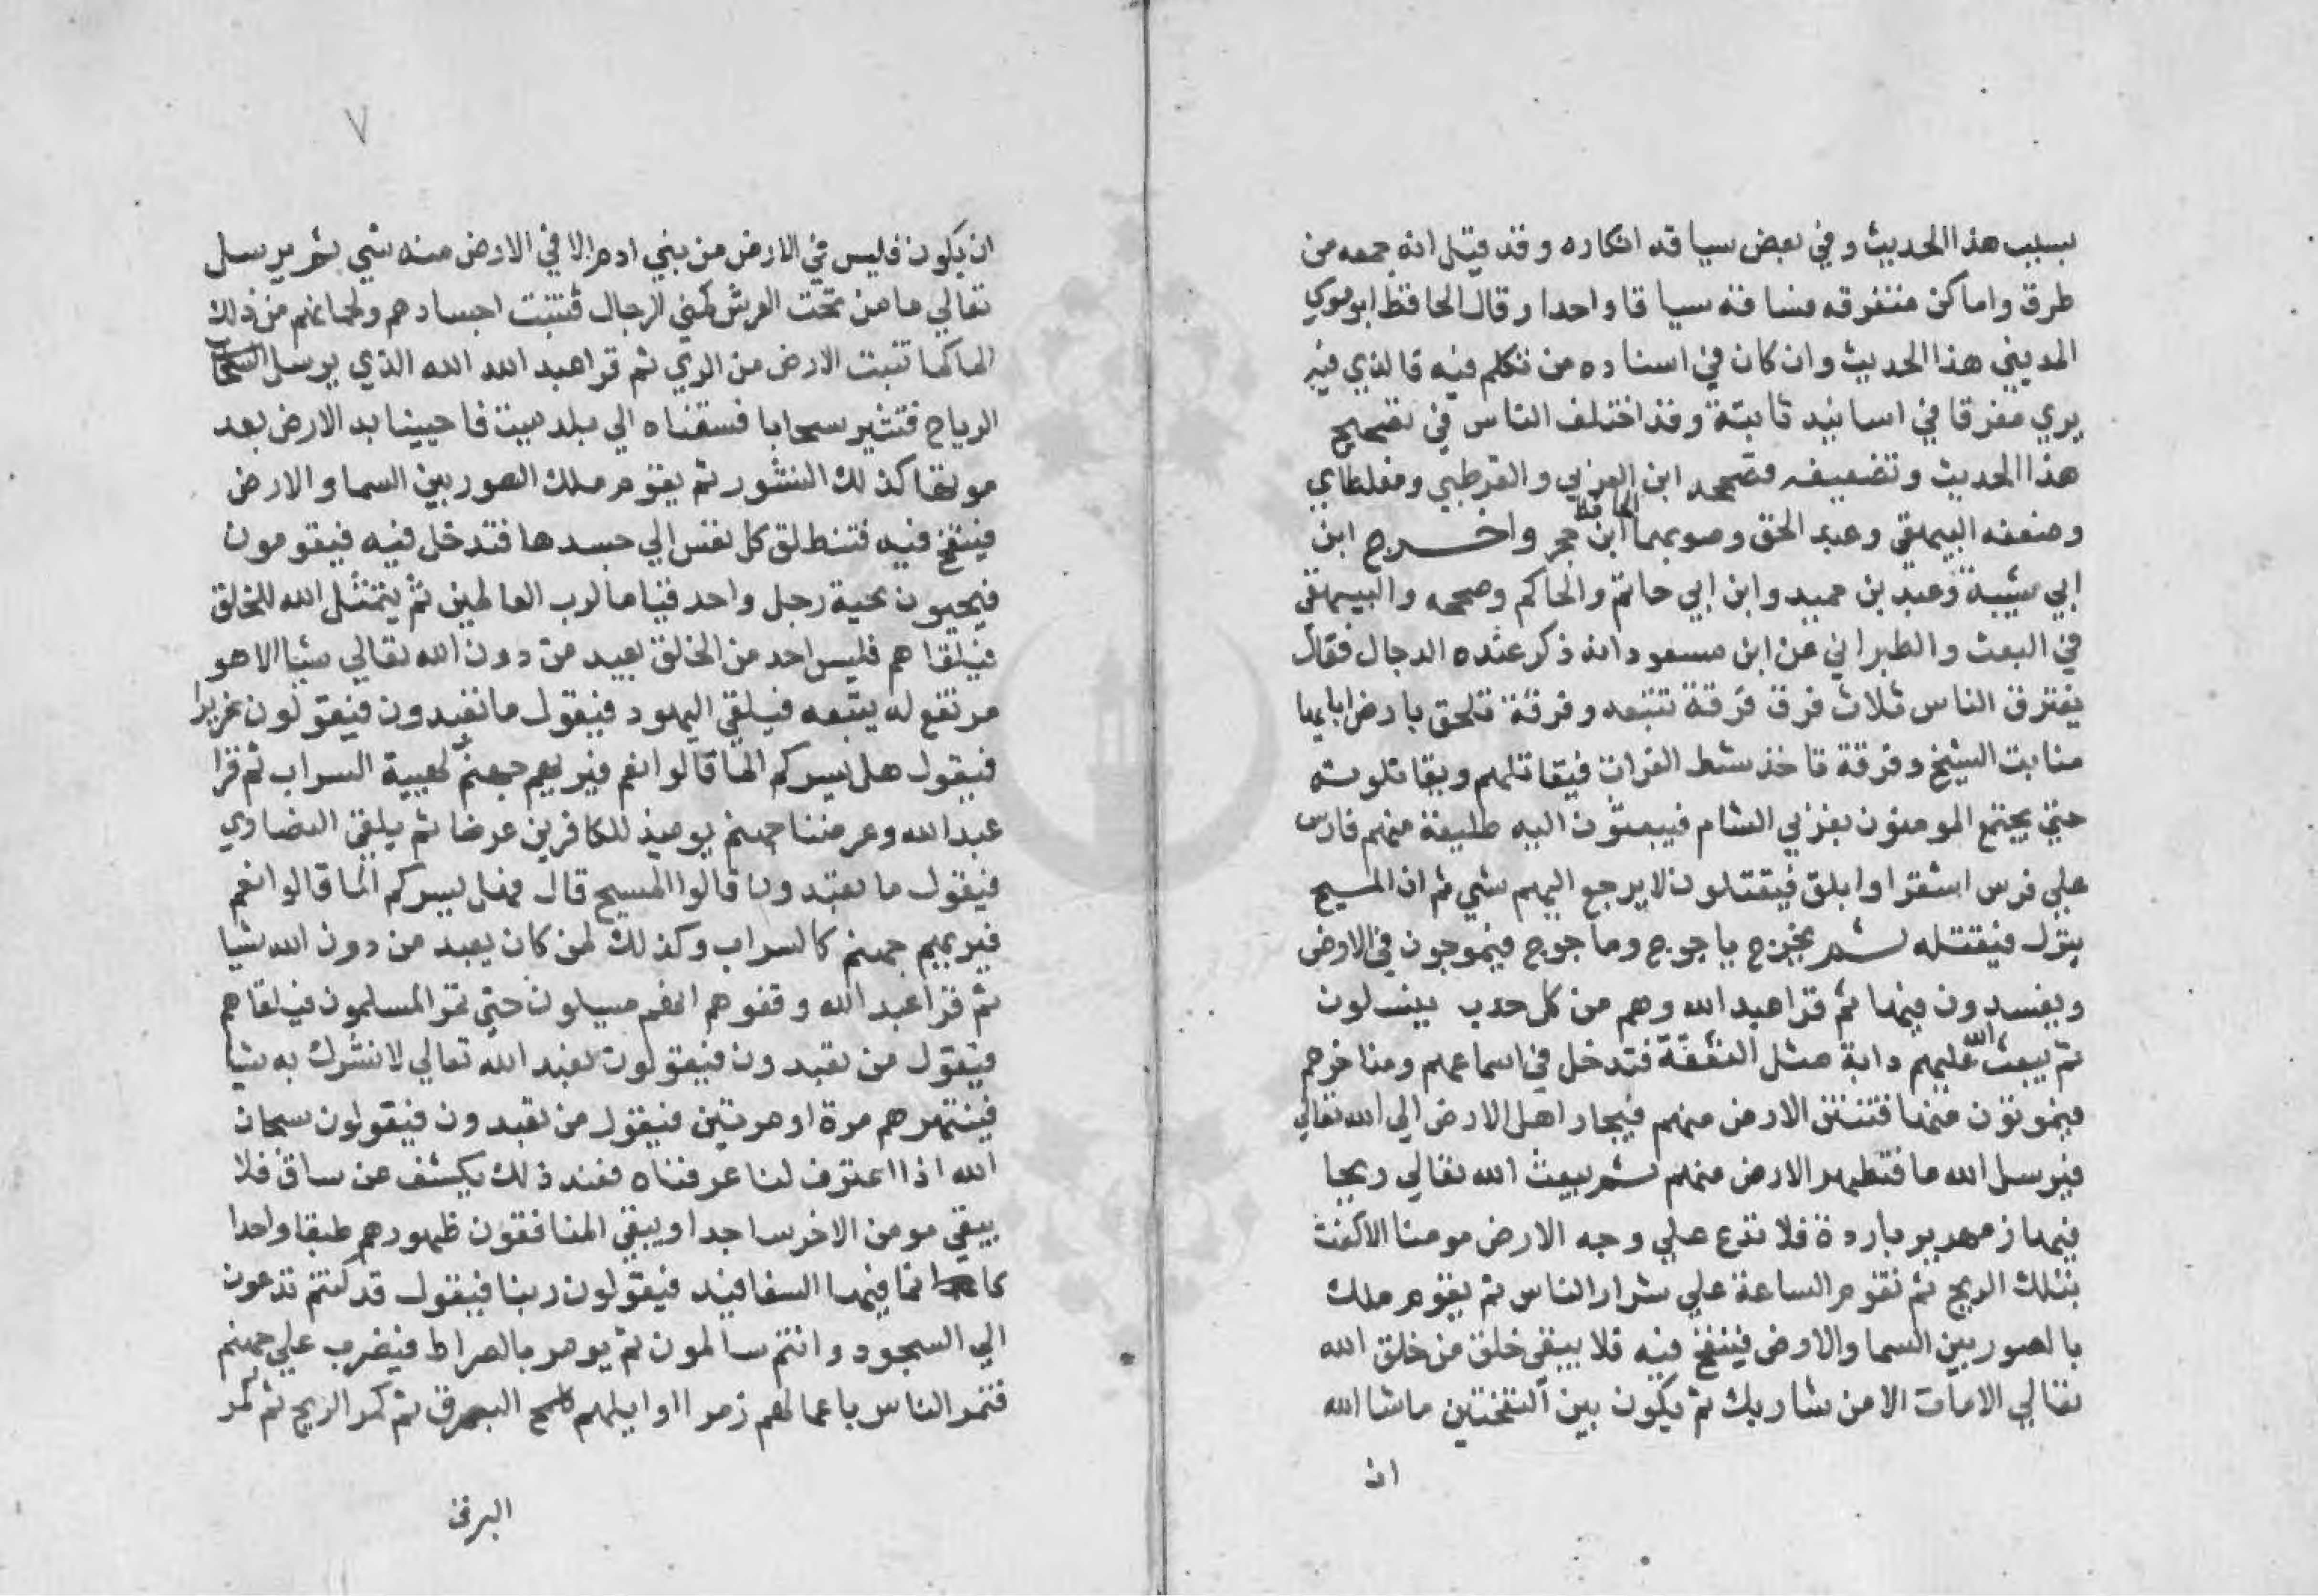 بسبب هذا الحديث وفي بعض سياقه انكاره وقد قيل انه جمعه من
طرق واماكن متفرقه فساقه سياقا واحدا وقال الحافظ ابو موسي
المديني هذا الحديث وان كان في اسناده من تكلم فيه فالذي فيه
يري مفرقا في اسانيد ثابتة وقد اختلف الناس في تصحيح
هذا الحديث وتضعيفه فصححه ابن العربي والقرطبي ومغلطاي
وضعفه البيهقي وعبد الحق وصوبهما الحافظ ابن حجر واخرج ابن
ابي شيبة وعبد بن حميد وابن ابي حاتم والحاكم وصححه والبيهقي
في البعث والطبراني عن ابن مسعود انه ذكر عنده الدجال فقال
يفترق الناس ثلاث فرق فرقة تتبعه وفرقة تلحق بارض ابايها
منابت الشيخ وفرقة تاخذ شط الفرات فيقاتلهم ويقاتلونه
حتي يجتمع المومنون بغربي الشام فيبعثون اليه طليعة منهم فارس
علي فرس اشقر او ابلق فيقتلون لا يرجع اليهم شي ثم ان المسيح
ينزل فيقتله ثم يخرج ياجوج وماجوج فيموجون في الارض
ويفسدون فيها ثم قرا عبد الله وهم من كل حدب ينسلون
ثم يبعث الله عليهم دابة مثل النغفة فتدخل في اسماعهم ومناخرهم
فيموتون منها فتنتن الارض منهم فيجار اهل الارض الي الله تعالي
فيرسل الله ما فتطهر الارض منهم ثم يبعث الله تعالي ريحا
فيها زمهرير باردة فلا تدع علي وجه الارض مومنا الا كفت
بتلك الريح ثم تقوم الساعة علي شرار الناس ثم يقوم ملك
بالصور بين السما والارض فينفخ فيه فلا يبقي خلق من خلق الله
تعالي الا مات الا من شا ربك ثم يكون بين النفختين ما شا الله
ان
٧
ان يكون فليس في الارض من بني ادم الا في الارض منه شي ثم يرسل
تعالي ما من تحت العرش كمني الرجال فتنبت اجسادهم ولحمانهم من ذلك
الما كما تنبت الارض من الري ثم قرا عبد الله الله الذي يرسل
الرياح فتثير سحابا فسقناه الي بلد ميت فاحيينا به الارض بعد
موتها كذلك النشور ثم يقوم ملك الصور بين السما والارض
فينفخ فيه فتنطلق كل نفس الي جسدها فتدخل فيه فيقومون
فيجيون تحية رجل واحد قياما لرب العالمين ثم يتمثل الله للخلق
فيلقاهم فليس احد من الخلق يعبد من دون الله تعالي شيا الا هو
مرتفع له يتبعه فيلقي اليهود فيقول ما تعبدون فيقولون عزيرا
فيقول هل يسركم الما قالوا نعم فيريهم جهنم كهيية السراب ثم قرا
عبد الله وعرضنا جهنم يوميذ للكافرين عرضا ثم يلقي النصاري
فيقول ما تعبدون قالوا المسيح قال فهل يسركم الما قالوا نعم
فيريهم جهنم كالسراب وكذلك لمن كان يعبد من دون الله شيا
ثم قرا عبد الله وقفوهم انهم مسيلون حتي تمر المسلمون فيلقاهم
فيقول من تعبدون فيقولون نعبد الله تعالي لا نشرك به شيا
فينتهرهم مرة او مرتين فيقول من تعبدون فيقولون سبحان
الله اذا اعترف لنا عرفناه فعند ذلك يكشف عن ساق فلا
يبقي مومن الا خر ساجدا ويبقي المنافقون ظهورهم طبقا واحدا
كانما فيها السفافيد فيقولون ربنا فيقول قد كنتم تدعون
الي السجود وانتم سالمون ثم يومر بالصراط فيضرب علي جهنم
فتمر الناس باعمالهم زمرا اوايلهم كلمح البرق ثم كمر الريح ثم كمر
البرق